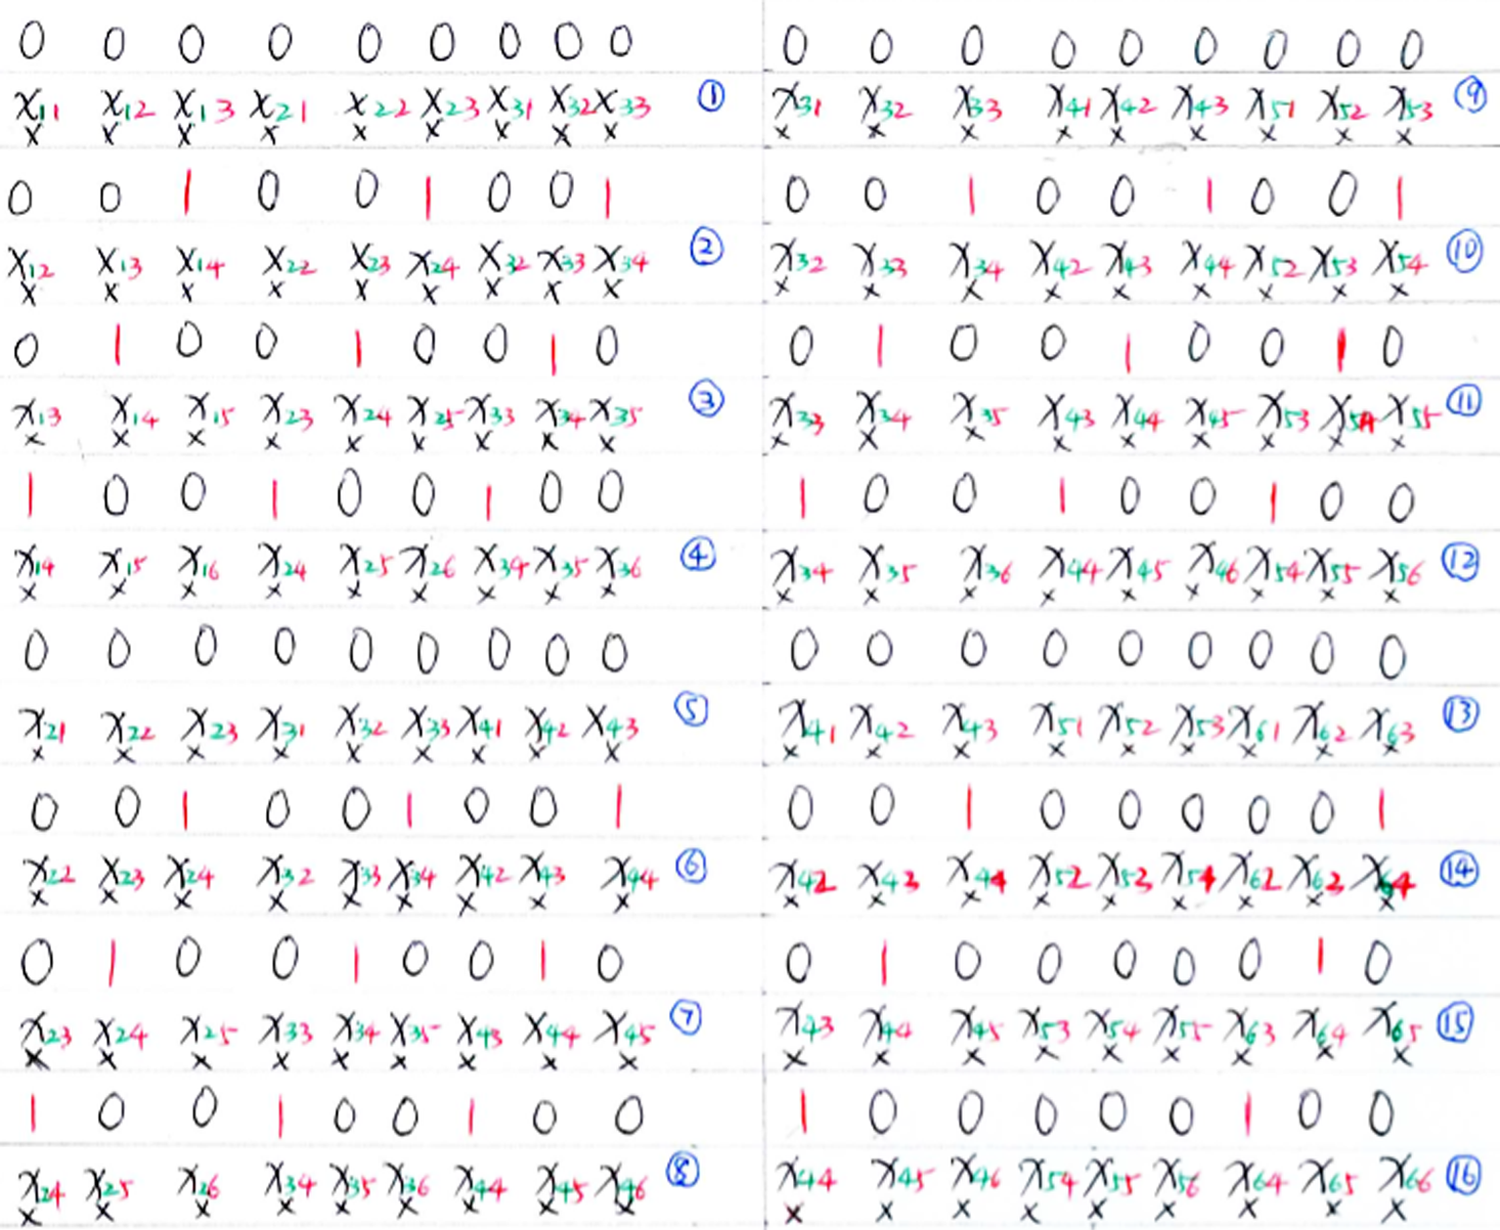 0 0 0 0 0 0 0 0 0
x11 x12 x13 x21 x22 x23 x31 x32 x33 ①
× × × × × × × × ×
0 0 1 0 0 1 0 0 1
x12 x13 x14 x22 x23 x24 x32 x33 x34 ②
× × × × × × × × ×
0 1 0 0 1 0 0 1 0
x13 x14 x15 x23 x24 x25 x33 x34 x35 ③
× × × × × × × × ×
1 0 0 1 0 0 1 0 0
x14 x15 x16 x24 x25 x26 x34 x35 x36 ④
× × × × × × × × ×
0 0 0 0 0 0 0 0 0
x21 x22 x23 x31 x32 x33 x41 x42 x43 ⑤
× × × × × × × × ×
0 0 1 0 0 1 0 0 1
x22 x23 x24 x32 x33 x34 x42 x43 x44 ⑥
× × × × × × × × ×
0 1 0 0 1 0 0 1 0
x23 x24 x25 x33 x34 x35 x43 x44 x45 ⑦
× × × × × × × × ×
1 0 0 1 0 0 1 0 0
x24 x25 x26 x34 x35 x36 x44 x45 x46 ⑧
× × × × × × × × ×
0 0 0 0 0 0 0 0 0
x31 x32 x33 x41 x42 x43 x51 x52 x53 ⑨
× × × × × × × × ×
0 0 1 0 0 1 0 0 1
x32 x33 x34 x42 x43 x44 x52 x53 x54 ⑩
× × × × × × × × ×
0 1 0 0 1 0 0 1 0
x33 x34 x35 x43 x44 x45 x53 x54 x55 ⑪
× × × × × × × × ×
1 0 0 1 0 0 1 0 0
x34 x35 x36 x44 x45 x46 x54 x55 x56 ⑫
× × × × × × × × ×
0 0 0 0 0 0 0 0 0
x41 x42 x43 x51 x52 x53 x61 x62 x63 ⑬
× × × × × × × × ×
0 0 1 0 0 0 0 0 1
x42 x43 x44 x52 x53 x54 x62 x63 x64 ⑭
× × × × × × × × ×
0 1 0 0 0 0 0 1 0
x43 x44 x45 x53 x54 x55 x63 x64 x65 ⑮
× × × × × × × × ×
1 0 0 0 0 0 1 0 0
x44 x45 x46 x54 x55 x56 x64 x65 x66 ⑯
× × × × × × × × ×